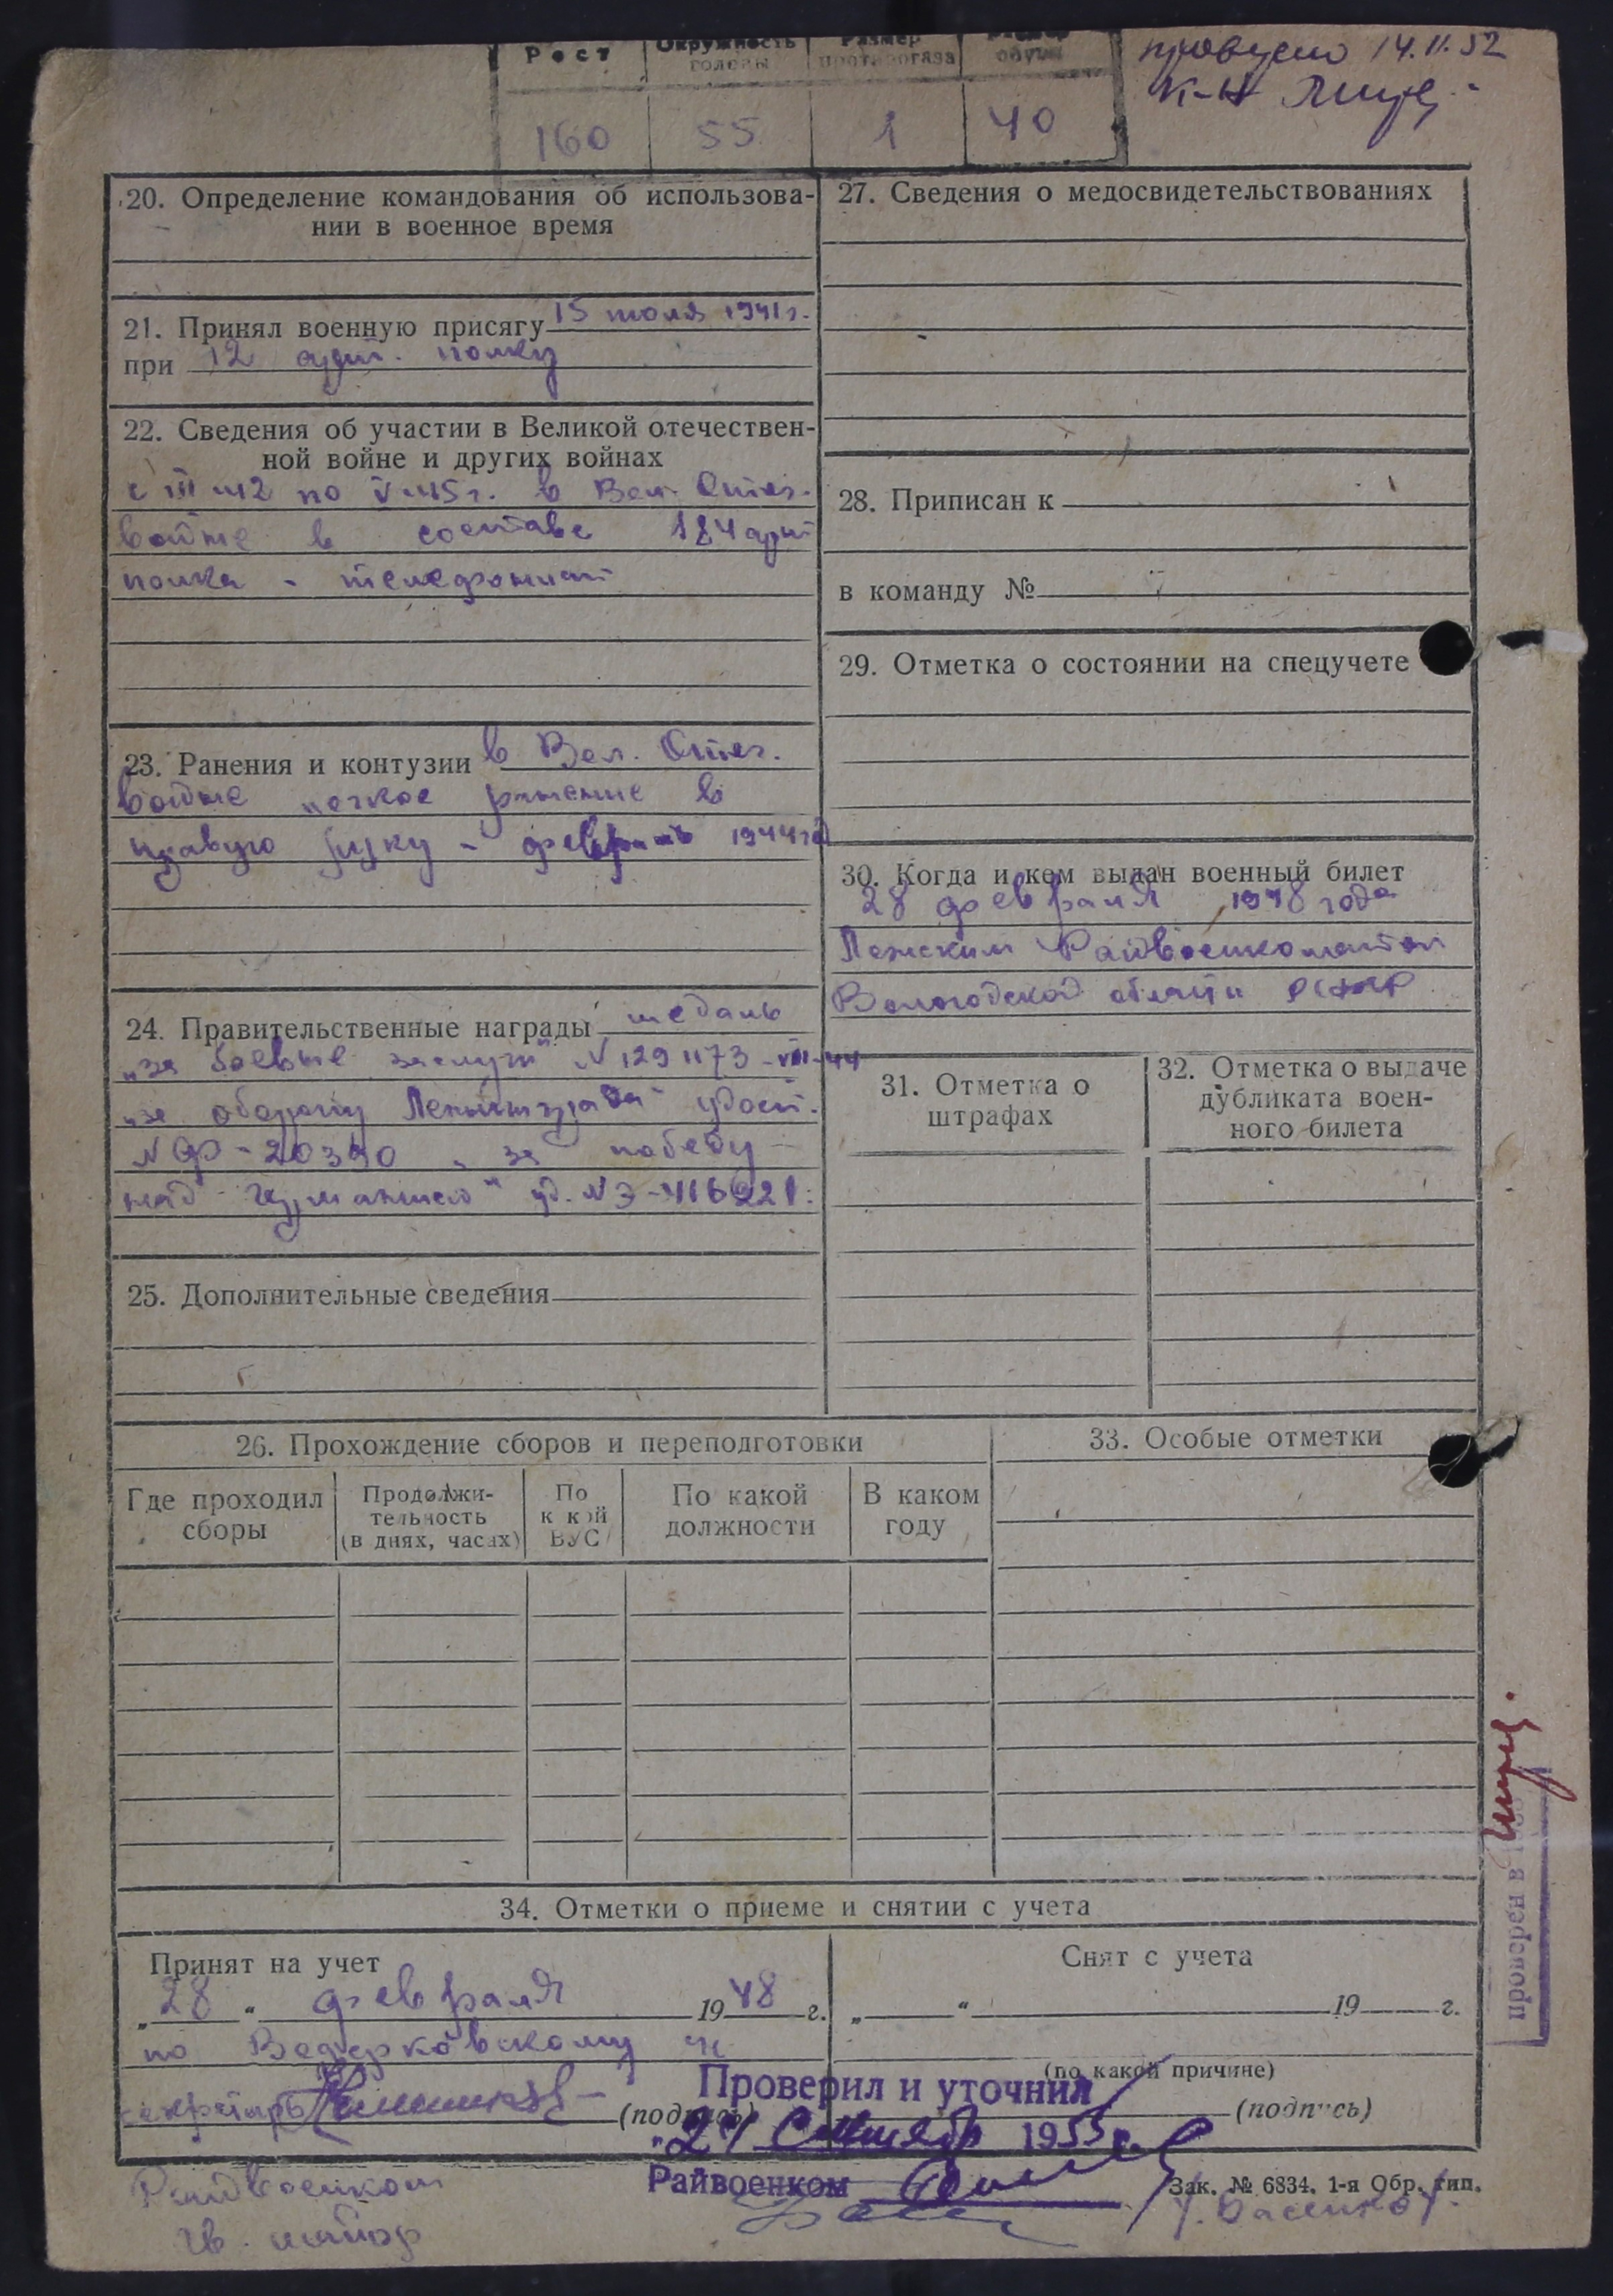 Рост
Окружность головы
Размер противогаза
Размер обуви
160
55
1
40
проверено 14.11.52
К-н
20. Определение командования об использова-
нии в военное время
21. Принял военную присягу 15 июля 1941 г.
при 12 арт. полку
22. Сведения об участии в Великой отечествен-
ной войне и других войнах
с III-42 по V-45 г. в Вел. Отеч.
войне в составе 184 арт
полка - телефонист
23. Ранения и контузии в Вел. Отеч.
войне легкое ранение в
правую руку - февраль 1944 год
24. Правительственные награды медаль
„за боевые заслуги" N 1291173-VIII-44
„за оборону Ленинграда" удост.
N ФР-20390 „за победу
над Германией" уд. N Э-416921.
25. Дополнительные сведения
26. Прохождение сборов и переподготовки
Где проходил сборы
Продолжи-
тельность
(в днях, часах)
По
к кой
ВУС
По какой
должности
В каком
году
27. Сведения о медосвидетельствованиях
28. Приписан к
в команду №
29. Отметка о состоянии на спецучете
30. Когда и кем выдан военный билет
28 февраля 1948 года
Лежским Райвоенкоматом
Вологодской области РСФСР
31. Отметка о
штрафах
32. Отметка о выдаче
дубликата воен-
ного билета
33. Особые отметки
34. Отметки о приеме и снятии с учета
Принят на учет
„28" февраля 1948 г.
по Ведерковскому
секретарь
(подпись)
Снят с учета
„ " 19 г.
(по какой причине)
(подпись)
Проверил и уточнил
„24 Сентябр 1953 г.
Райвоенком
Зак. № 6834. 1-я Обр. тип.
Райвоенком
гв. майор
проверен в 195